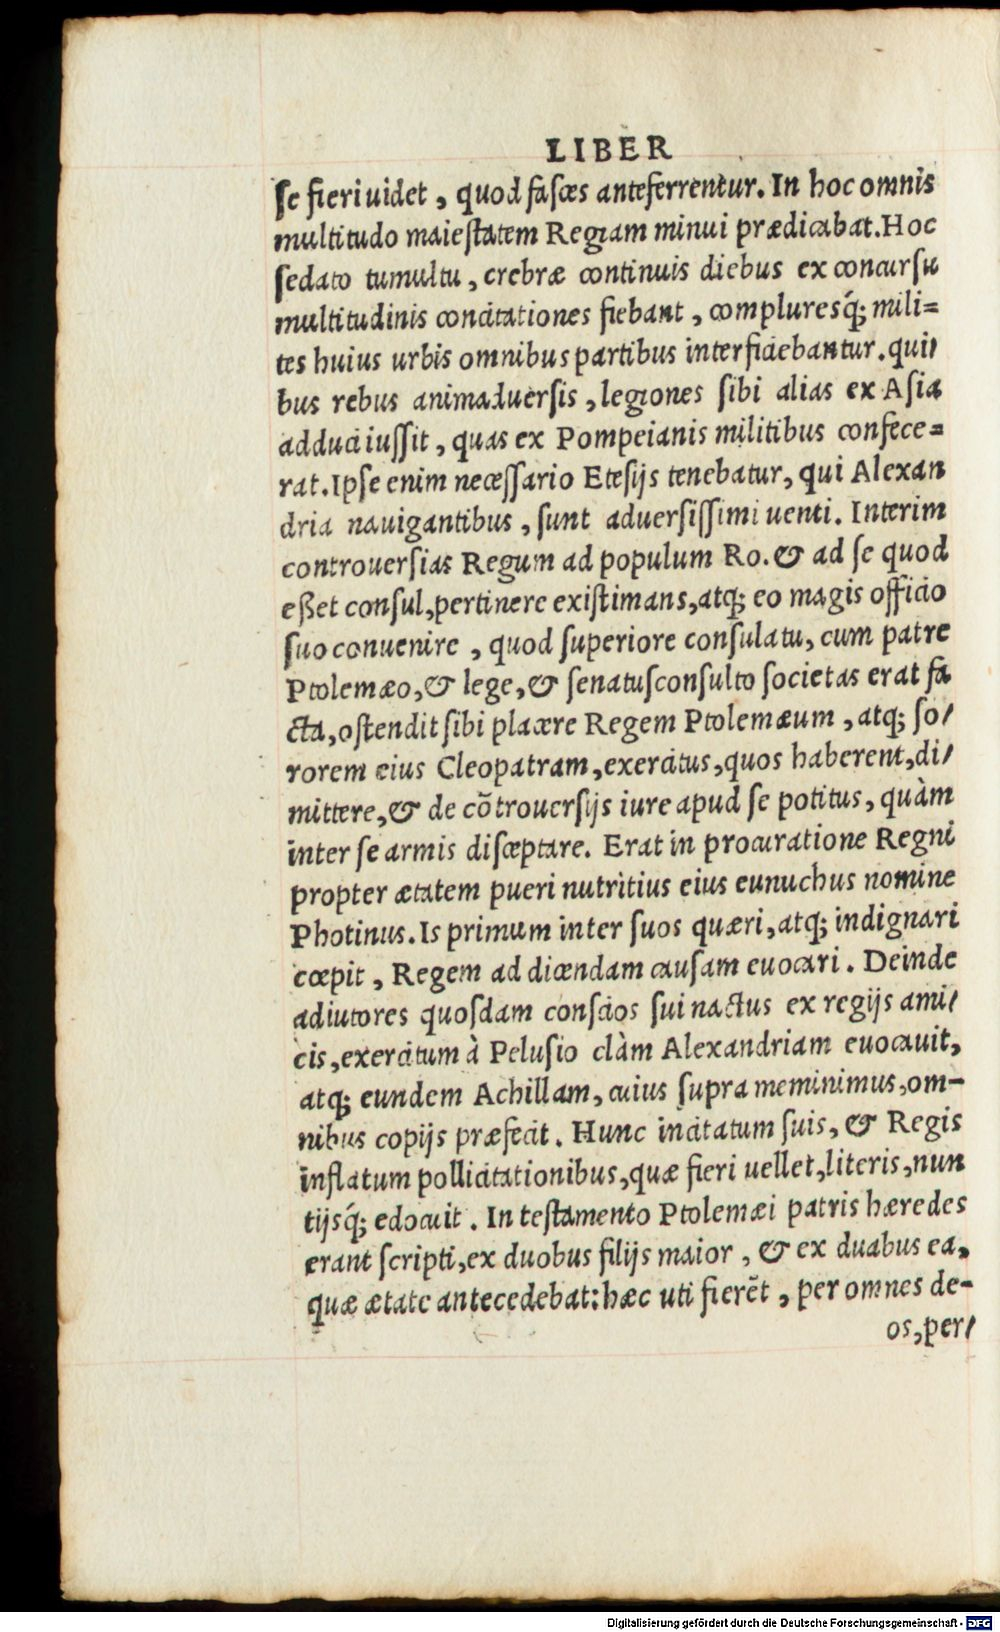 LIBER
se fieri uidet, quod fasces anteferrentur. In hoc omnis
multitudo maiestatem Regiam minui prædicabat. Hoc
sedato tumultu, crebræ continuis diebus ex concursu
multitudinis concitationes fiebant, compluresq́; mili=
tes huius urbis omnibus partibus interficiebantur. qui/
bus rebus animaduersis, legiones sibi alias ex Asia
adduci iussit, quas ex Pompeianis militibus confece=
rat. Ipse enim necessario Etesijs tenebatur, qui Alexan
dria nauigantibus, sunt aduersissimi uenti. Interim
controuersias Regum ad populum Ro. & ad se quod
eßet consul, pertinere existimans, atq; eo magis officio
suo conuenire, quod superiore consulatu, cum patre
Ptolemæo, & lege, & senatusconsulto societas erat fa
cta, ostendit sibi placere Regem Ptolemæum, atq; so/
rorem eius Cleopatram, exercitus, quos haberent, di/
mittere, & de cōtrouersijs iure apud se potitus, quàm
inter se armis disceptare. Erat in procuratione Regni
propter ætatem pueri nutritius eius eunuchus nomine
Photinus. Is primum inter suos quæri, atq; indignari
cœpit, Regem ad dicendam causam euocari. Deinde
adiutores quosdam conscios sui nactus ex regijs ami/
cis, exercitum à Pelusio clàm Alexandriam euocauit,
atq; eundem Achillam, cuius supra meminimus, om-
nibus copijs præfecit. Hunc incitatum suis, & Regis
inflatum pollicitationibus, quæ fieri uellet, literis, nun
tijsq́; edocuit. In testamento Ptolemæi patris hæredes
erant scripti, ex duobus filijs maior, & ex duabus ea,
quæ ætate antecedebat: hæc uti fierēt, per omnes de-
os, per/
Digitalisierung gefördert durch die Deutsche Forschungsgemeinschaft - DFG